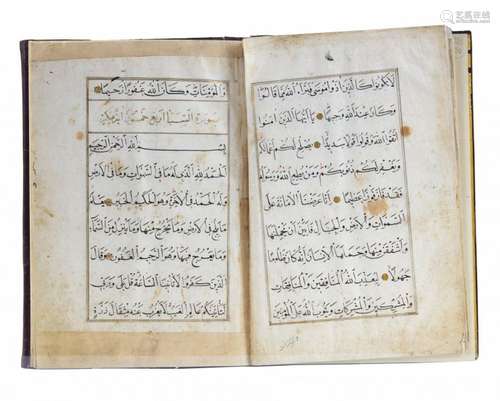 لا تكونوا كالذين آذوا موسى فبرأه الله مما قالوا
وكان عند الله وجيها يا أيها الذين آمنوا
اتقوا الله وقولوا قولا سديدا يصلح لكم أعمالكم
ويغفر لكم ذنوبكم ومن يطع الله ورسوله
فقد فاز فوزا عظيما إنا عرضنا الأمانة على
السموات والأرض والجبال فأبين أن يحملنها
وأشفقن منها وحملها الإنسان إنه كان ظلوما
جهولا ليعذب الله المنافقين والمنافقات
والمشركين والمشركات ويتوب الله على المؤمنين
والمؤمنات وكان الله غفورا رحيما
سورة السبا اربع خمسون
بسم الله الرحمن الرحيم
الحمد لله الذي له ما في السموات وما في الأرض
وله الحمد في الآخرة وهو الحكيم الخبير يعلم
ما يلج في الأرض وما يخرج منها وما ينزل من السماء
وما يعرج فيها وهو الرحيم الغفور وقال
الذين كفروا لا تأتينا الساعة قل بلى وربي
لتأتينكم عالم الغيب لا يعزب عنه مثقال ذرة